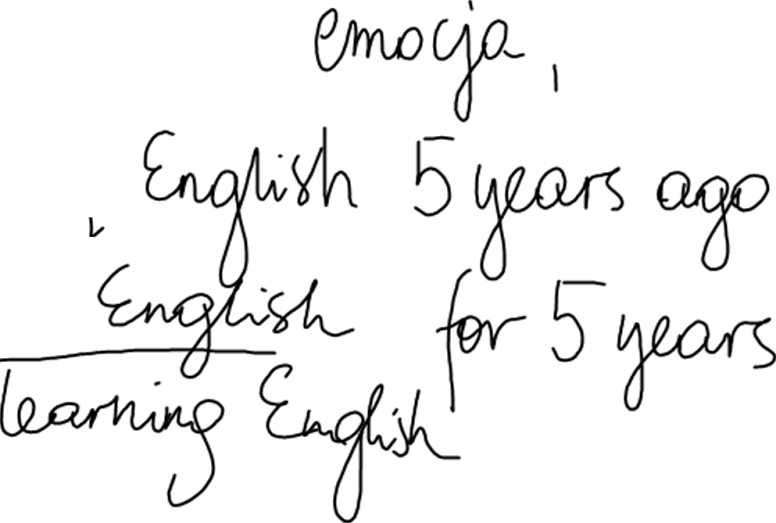 emocja,
English 5 years ago
English for 5 years
learning English